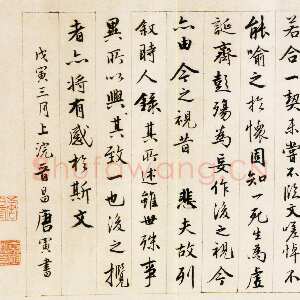 若合一契未嘗不臨文嗟悼不
能喻之於懷固知一死生為虛
誕齊彭殤為妄作後之視今
亦由今之視昔 悲夫故列
敘時人錄其所述雖世殊事
異所以興其致一也後之攬
者亦將有感於斯文
戊寅三月上浣晉昌唐寅書
Shufawang.cn